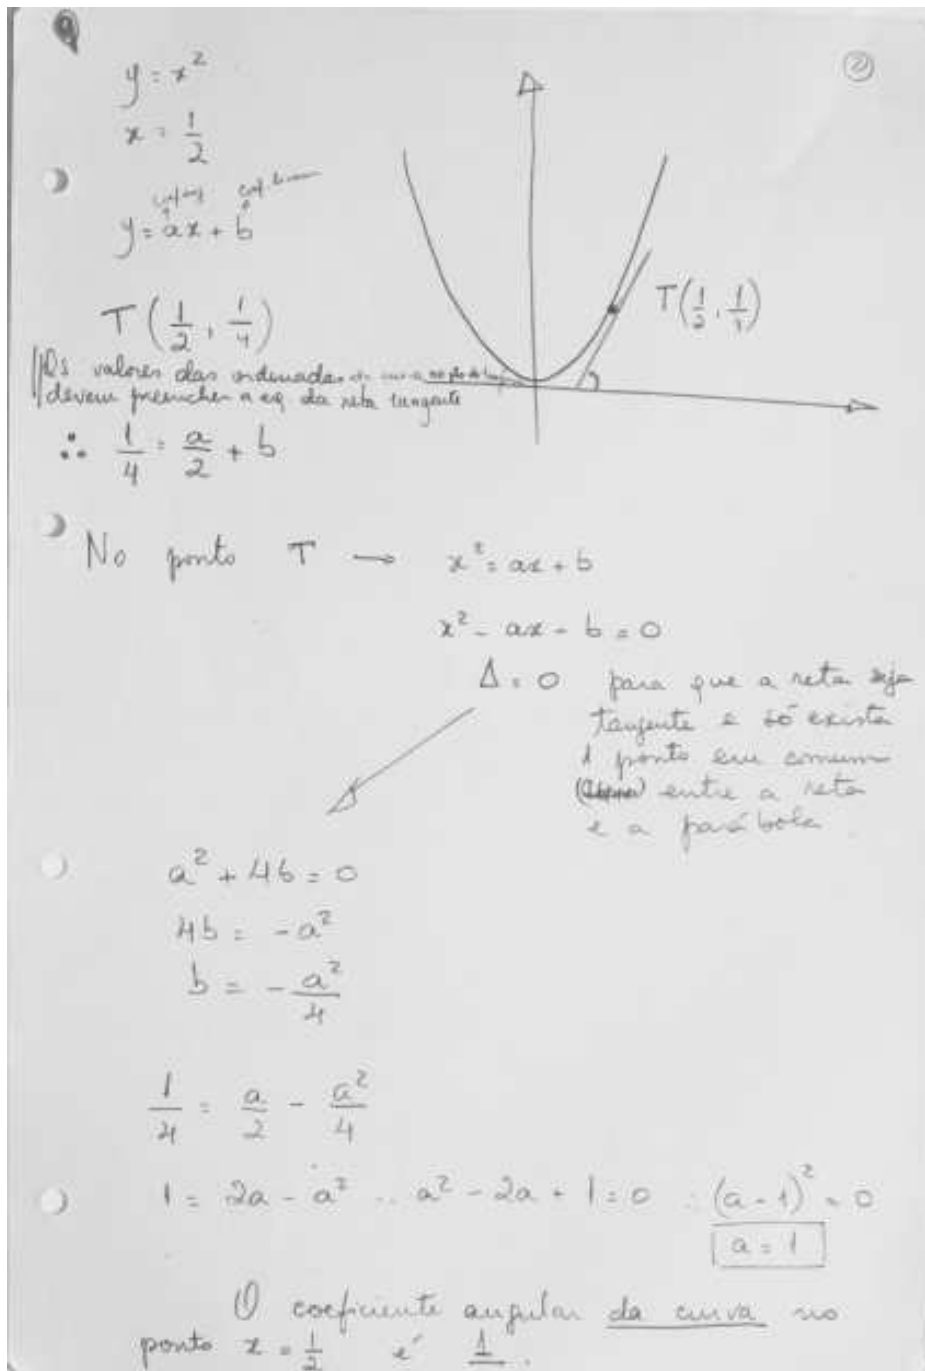 ②
y = x²
x = 1/2
y = ax + b
T (1/2, 1/4)
T(1/2, 1/4)
Os valores das ordenadas da curva no
devem preencher a eq da reta tangente
∴ 1/4 = a/2 + b
No ponto T → x² = ax + b
x² - ax - b = 0
Δ = 0 para que a reta seja
tangente e só exista
1 ponto em comum
entre a reta
e a parábola.
a² + 4b = 0
4b = -a²
b = - a²/4
1/4 = a/2 - a²/4
1 = 2a - a² ∴ a² - 2a + 1 = 0 ∴ (a - 1)² = 0
a = 1
O coeficiente angular da curva no
ponto x = 1/2 é 1.